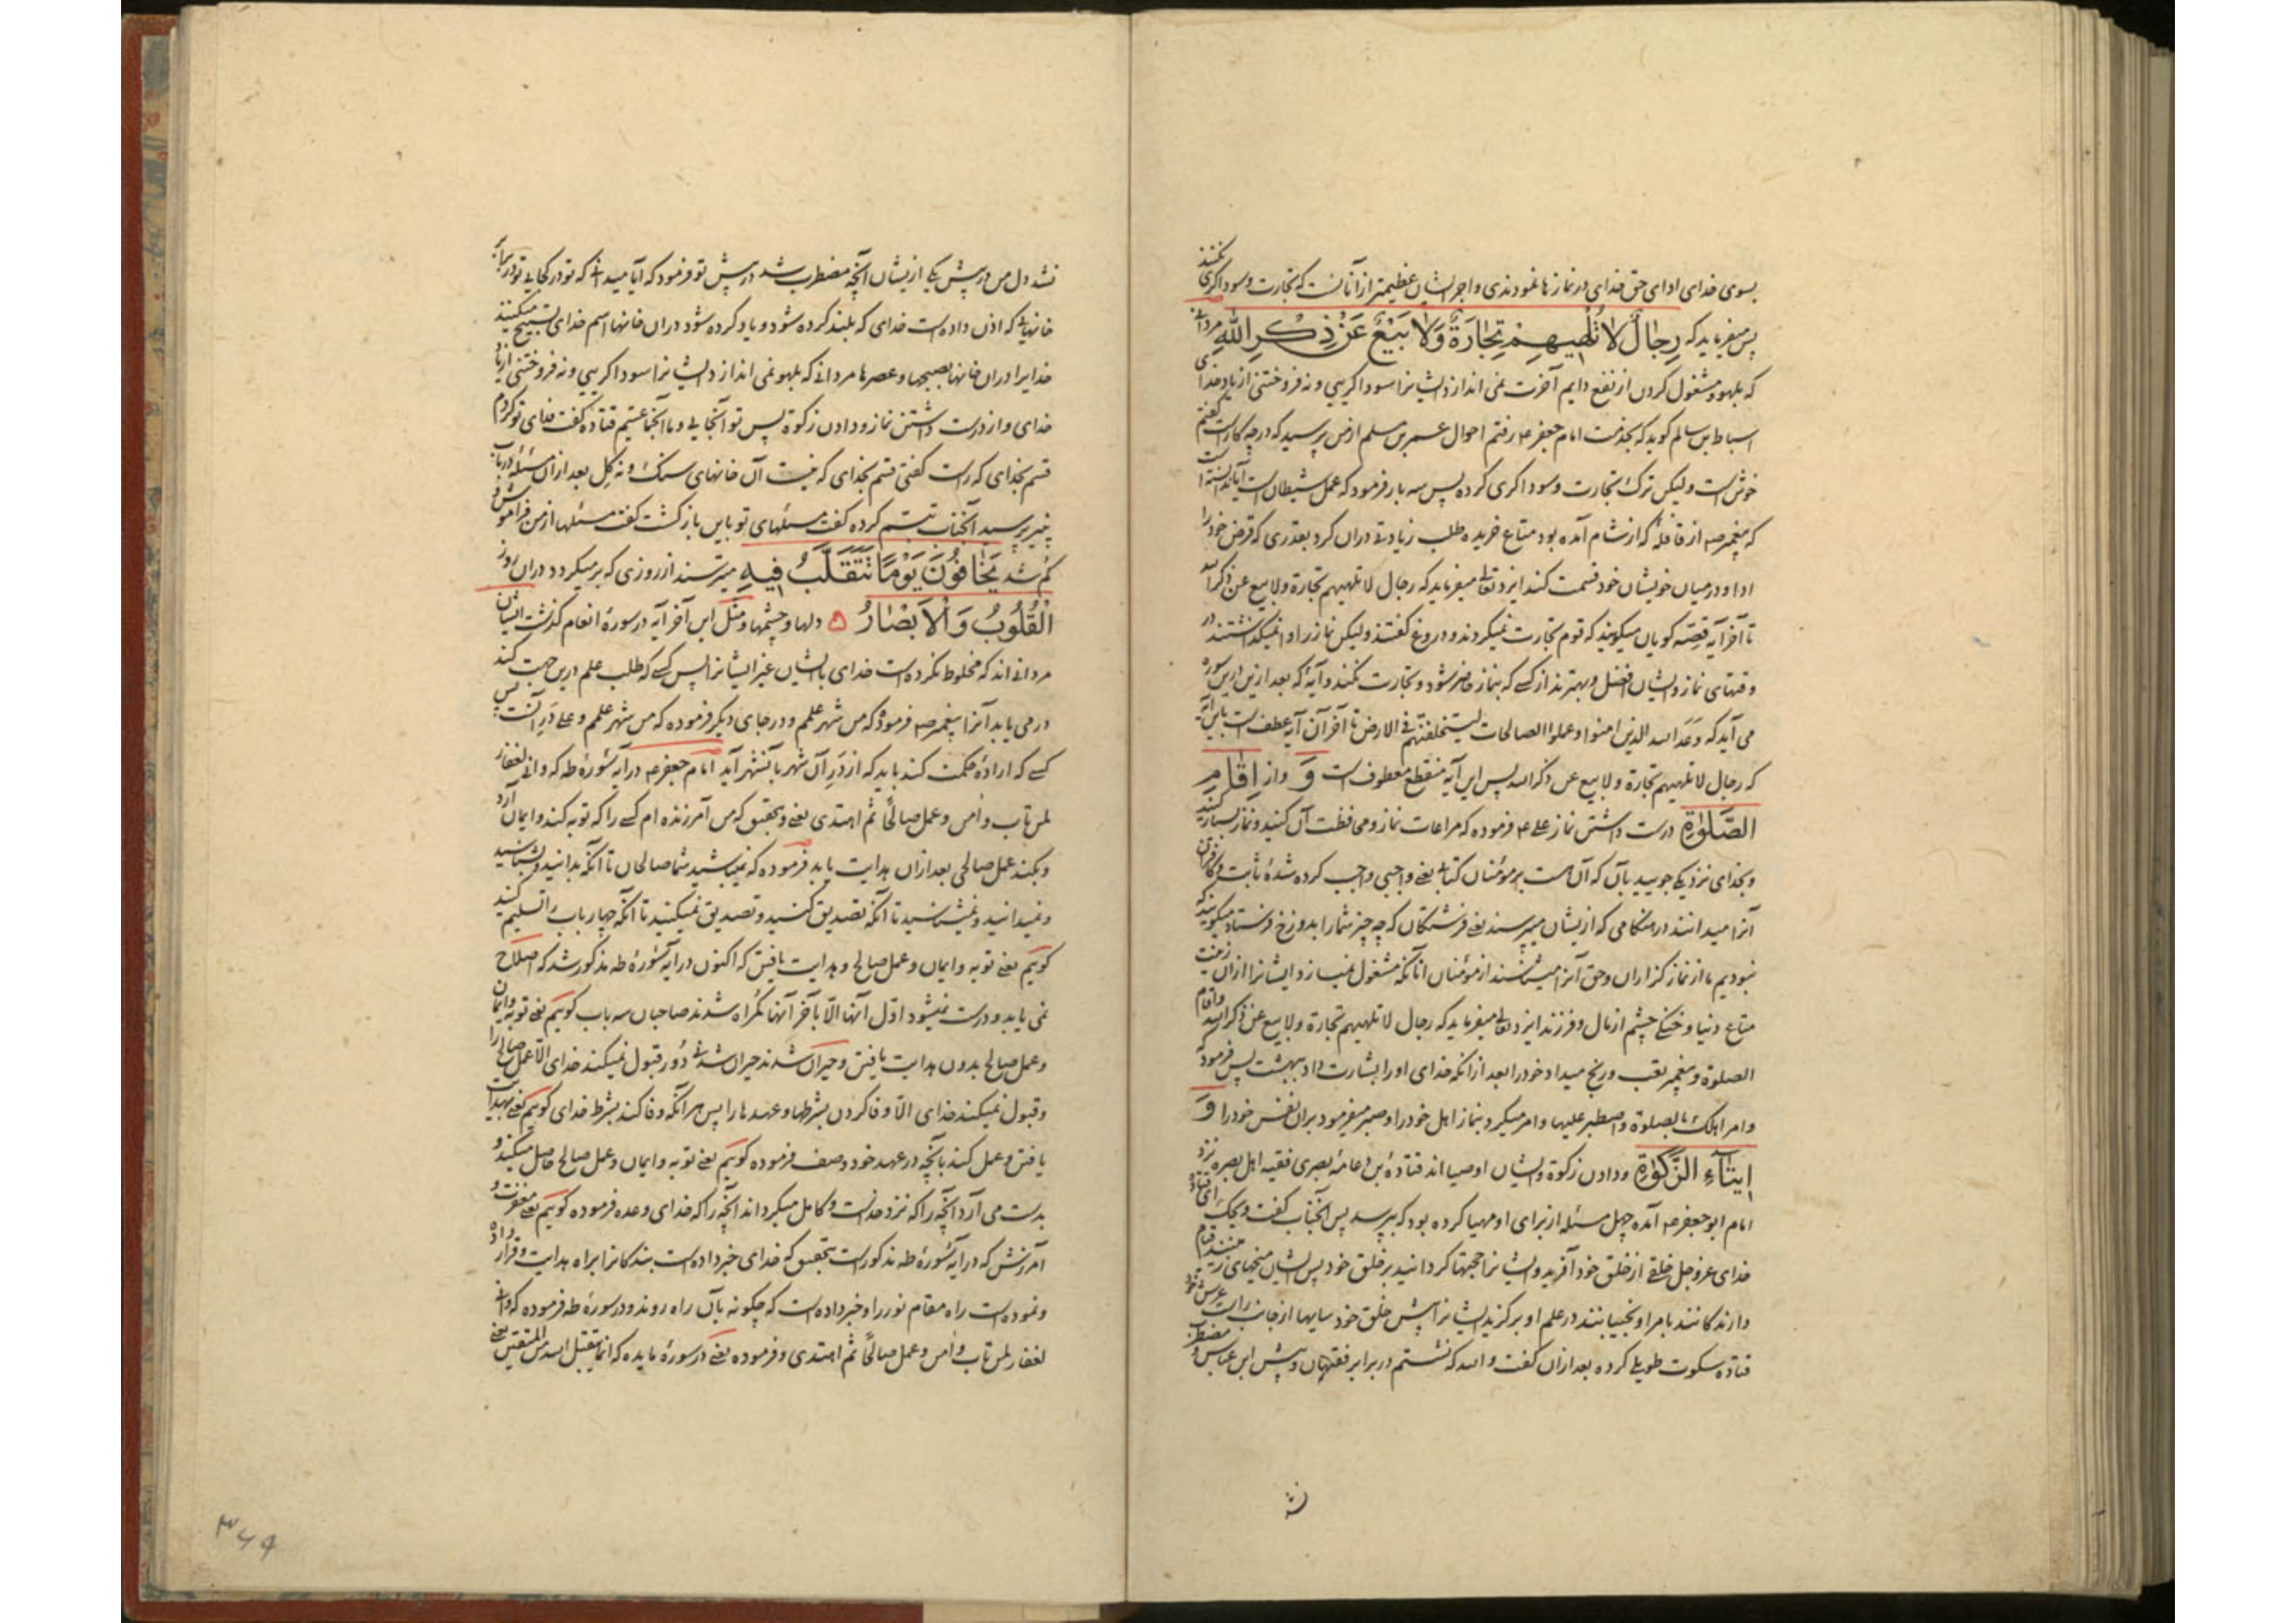 بسوی خدای ادای حق خدای در نمازها نمودندی و اجر ایشان عظیمتر از آنانست که تجارت و سوداگری نکنند
پس میفرماید که رِجَالٌ لَا تُلْهِيهِمْ تِجَارَةٌ وَلَا بَيْعٌ عَنْ ذِكْرِ اللَّهِ مردانی
که بلهو و مشغول کردن از نفع دایم آخرت نمی اندازد ایشانرا سوداگریی و نه فروختنی از یاد خدای
اسباط بن سالم گوید که بخدمت امام جعفر ع رفتم احوال عمر بن مسلم از من پرسید که در چه کار است گفتم
خوش است ولیکن ترک تجارت و سوداگری کرده پس سه بار فرمود که عمل شیطان است آیا ندانسته است
که پیغمبر ص از قافلهٔ که از شام آمده بود متاع خریده طلب زیادتی دران کرد بقدری که قرض خود را
ادا و در میان خویشان خود قسمت کند ایزد تعالی میفرماید که رجال لا تلهیهم تجارة ولا بیع عن ذکر الله
تا آخر آیه قصه گویان میگویند که قوم تجارت نمیکردند و دروغ گفتند ولیکن نماز را وا نمیگذاشتند در
وقتهای نماز و ایشان افضل و بهترند از کسی که بنماز حاضر شود و تجارت نکند و آیهٔ که بعد ازین درین سوره
می آید که وعد الله الذین امنوا و عملوا الصالحات لیستخلفنّهم فی الارض تا آخر آن آیه عطف است باین آیه
که رجال لا تلهیهم تجارة ولا بیع عن ذکر الله پس این آیه منقطع معطوف است وَ و از إِقَامِ
الصَّلَاةِ درست داشتن نماز علی ع فرموده که مراعات نماز و محافظت آن کنید و نماز بسیار کنید
و بخدای نزدیکی جویید بآن که آن هست بر مؤمنان کتابی یعنی واجبی واجب کرده شدهٔ ثابت و کافران
آنرا میدانند در هنگامی که ازیشان میپرسند یعنی فرشتگان که چه چیز شما را بدوزخ فرستاد میگویند که
نبودیم ما از نماز گزاران و حق آنرا میشناسند از مؤمنان آنانکه مشغول نمیسازد ایشانرا ازان زینت
متاع دنیا و خنکی چشم از مال و فرزند ایزد تعالی میفرماید که رجال لا تلهیهم تجارة ولا بیع عن ذکر الله و اقام
الصلوة و پیغمبر تعب و رنج میداد خود را بعد ازانکه خدای او را بشارت داد ببهشت پس فرمود که
وامر اهلک بالصلوة واصطبر علیها و امر میکرد بنماز اهل خود را و صبر میفرمود بران نفس خود را وَ
إِيتَاءِ الزَّكَاةِ و دادن زکوة و ایشان اوصیااند قتادهٔ بن دعامهٔ بصری فقیه اهل بصره نزد
امام ابو جعفر ع آمده چهل مسئله از برای او مهیا کرده بود که بپرسد پس آنجناب گفت ویحک ای قتاده
خدای عز و جل خلقی از خلق خود آفرید و ایشانرا حجتها گردانید بر خلق خود پس ایشان میخهای زمینند قیام
دارندگانند بامر او نجیبانند در علم او برگزید ایشانرا پیش خلق خود سایهها از جانب راست عرش خود
قتاده سکوت طویلی کرده بعد ازان گفت والله که نشستم در برابر فقیهان و پیش ابن عباس و مضطرب
نشد
نشد دل من در پیش یکی ازیشان آنچه مضطرب شد در پیش تو فرمود که آیا میدانی که تو در کجایی تو در برابر
خانهایی که اذن داده است خدای که بلند کرده شود و یاد کرده شود دران خانها اسم خدای تسبیح میکنند
خدایرا دران خانها بصبحها و عصرها مردانی که بلهو نمی اندازد ایشانرا سوداگریی و نه فروختنی از یاد
خدای و از درست داشتن نماز و دادن زکوة پس تو آنجایی و ما آنجماعتیم قتاده گفت فدای تو گردم
قسم بخدای که راست گفتی قسم بخدای که نیست آن خانهای سنگ و نه گل بعد ازان مسئله در باب
پنیر پرسید آنجناب تبسم کرده گفت مسئلهای تو باین بازگشت گفت مسئلها از من فراموش و
گم شد يَخَافُونَ يَوْمًا تَتَقَلَّبُ فِيهِ میترسند از روزی که برمیگردد دران روز
الْقُلُوبُ وَالْأَبْصَارُ دلها و چشمها و مثل این آخر آیه در سورهٔ انعام گذشت ایشان
مردانی اند که مخلوط نکرده است خدای بایشان غیر ایشانرا پس کسی که طلب علم ازین جهت کند
در می یابد آنرا پیغمبر ص فرموده که من شهر علمم و در جای دیگر فرموده که من شهر علمم و علی در آنست پس
کسی که ارادهٔ حکمت کند باید که از در آن شهر بآنشهر آید امام جعفر ع در آیه سورهٔ طه که وانی لغفار
لمن تاب وامن وعمل صالحًا ثم اهتدی یعنی و بتحقیق که من آمرزنده ام کسی را که توبه کند و ایمان آرد
و بکند عمل صالحی بعد ازان هدایت یابد فرموده که نمیباشید شما صالحان تا آنکه بدانید و بشناسید
و نمیدانید و نمیشناسید تا آنکه تصدیق کنید و تصدیق نمیکنید تا آنکه چهار باب را تسلیم کنید
گوییم یعنی توبه و ایمان و عمل صالح و هدایت یافتن که اکنون در آیه سورهٔ طه مذکور شد که اصلاح
نمی یابد و درست نمیشود اوّل آنها الّا بآخر آنها گمراه شدند صاحبان سه باب گوییم یعنی توبه و ایمان
و عمل صالح بدون هدایت یافتن و حیران شدند حیران شدنی دور قبول نمیکند خدای الّا عمل صالح را
و قبول نمیکند خدای الّا وفا کردن بشرطها و عهدها را پس هر آنکه وفا کند بشرط خدای گوییم یعنی بهدایت
یافتن و عمل کند بآنچه در عهد خود وصف فرموده گوییم یعنی توبه و ایمان و عمل صالح حاصل میکند و
بدست می آرد آنچه را که نزد خداست و کامل میگرداند آنچه را که خدای وعده فرموده گوییم یعنی مغفرت و
آمرزش که در آیه سورهٔ طه مذکور است بتحقیق که خدای خبر داده است بندگانرا براه هدایت و قرار داده
و نموده است راه مقام نور را و خبر داده است که چگونه بآن راه روند و در سورهٔ طه فرموده که وانی
لغفار لمن تاب وامن وعمل صالحًا ثم اهتدی و فرموده یعنی در سورهٔ مایده که انما یتقبل الله من المتقین یعنی
۳۶۹